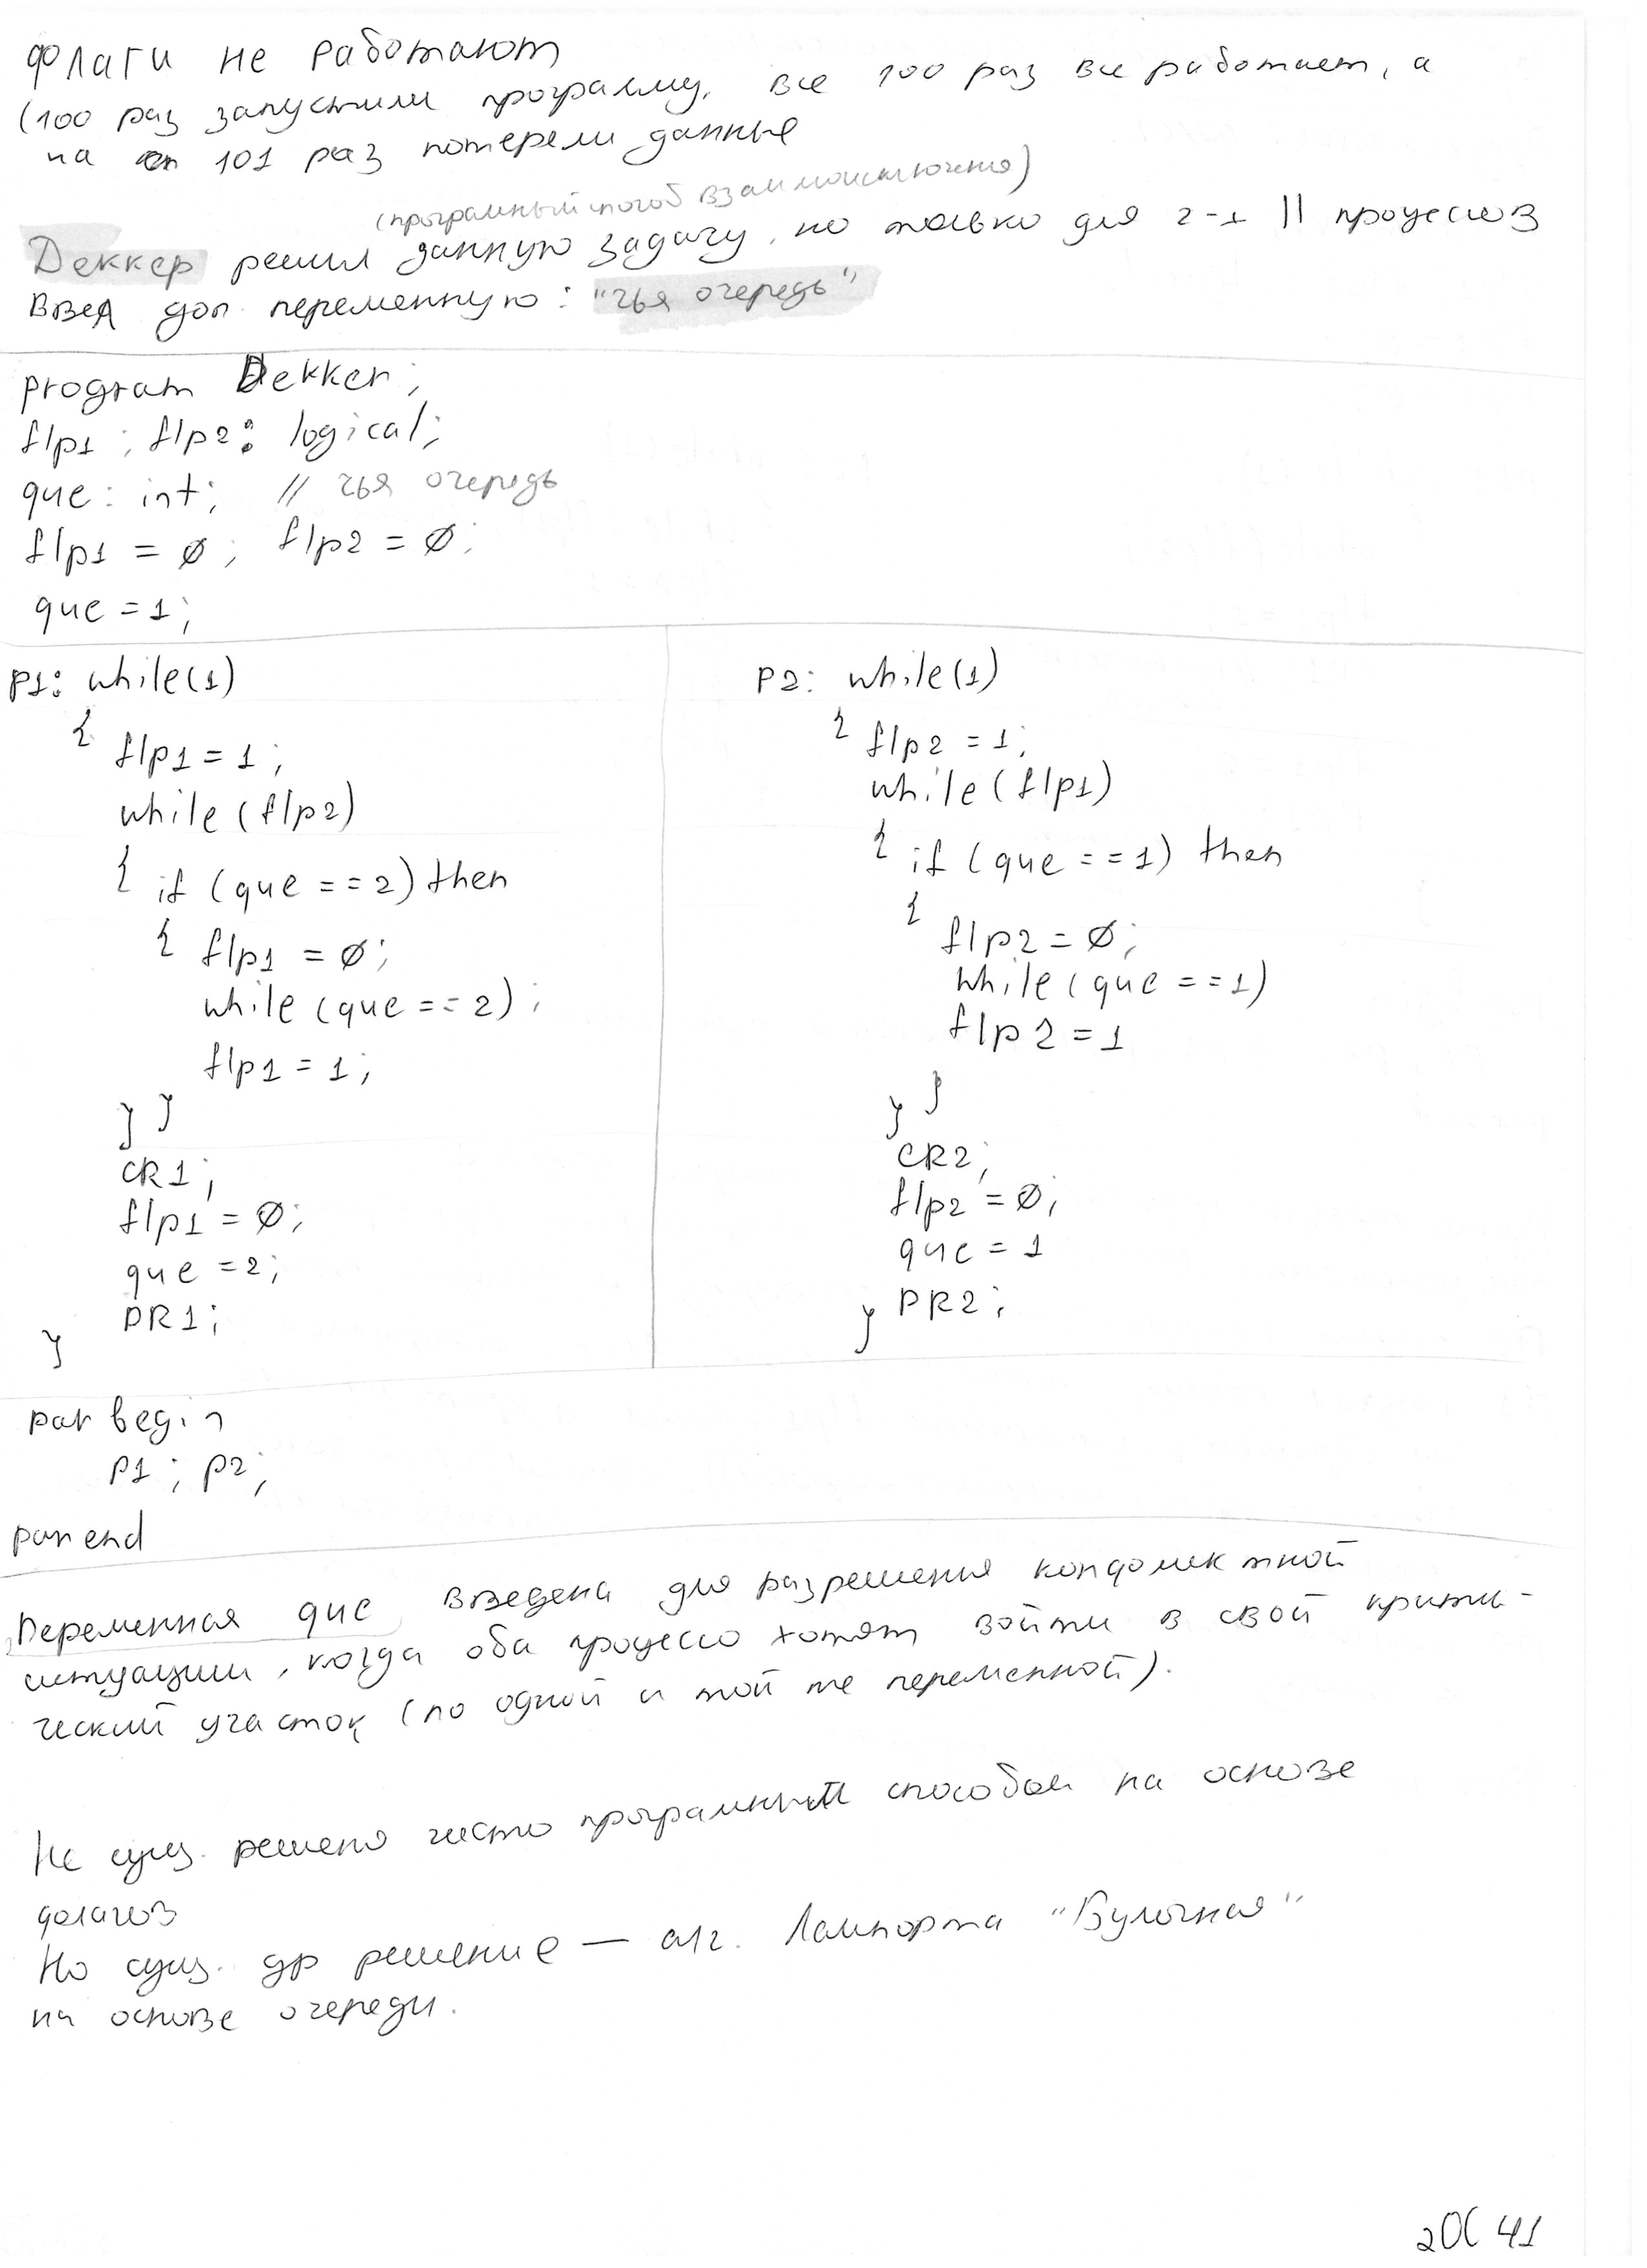 флаги не работают
(100 раз запустили программу, все 100 раз все работает, а
на 101 раз потеряли данные
(програмный способ взаимоисключения)
Деккер решил данную задачу, но только для 2-х || процессов
Ввел доп. переменную: "чья очередь"
program Dekker;
flp1; flp2: logical;
que: int; // чья очередь
flp1 = 0; flp2 = 0;
que = 1;
p1: while(1)
{ flp1 = 1;
while (flp2)
{ if (que == 2) then
{ flp1 = 0;
while (que == 2);
flp1 = 1;
} }
CR1;
flp1 = 0;
que = 2;
PR1;
}
P2: while(1)
{ flp2 = 1;
while (flp1)
{ if (que == 1) then
{
flp2 = 0;
while (que == 1)
flp2 = 1
} }
CR2;
flp2 = 0;
que = 1
} PR2;
par begin
p1; p2;
par end
Переменная que введена для разрешения конфликтной
ситуации, когда оба процесса хотят войти в свой крити-
ческий участок (по одной и той же переменной).
Не сущ. решено чисто програмным способом на основе
флагов
Но сущ. др решение — алг. Лампорта "Булочная"
на основе очереди.
41